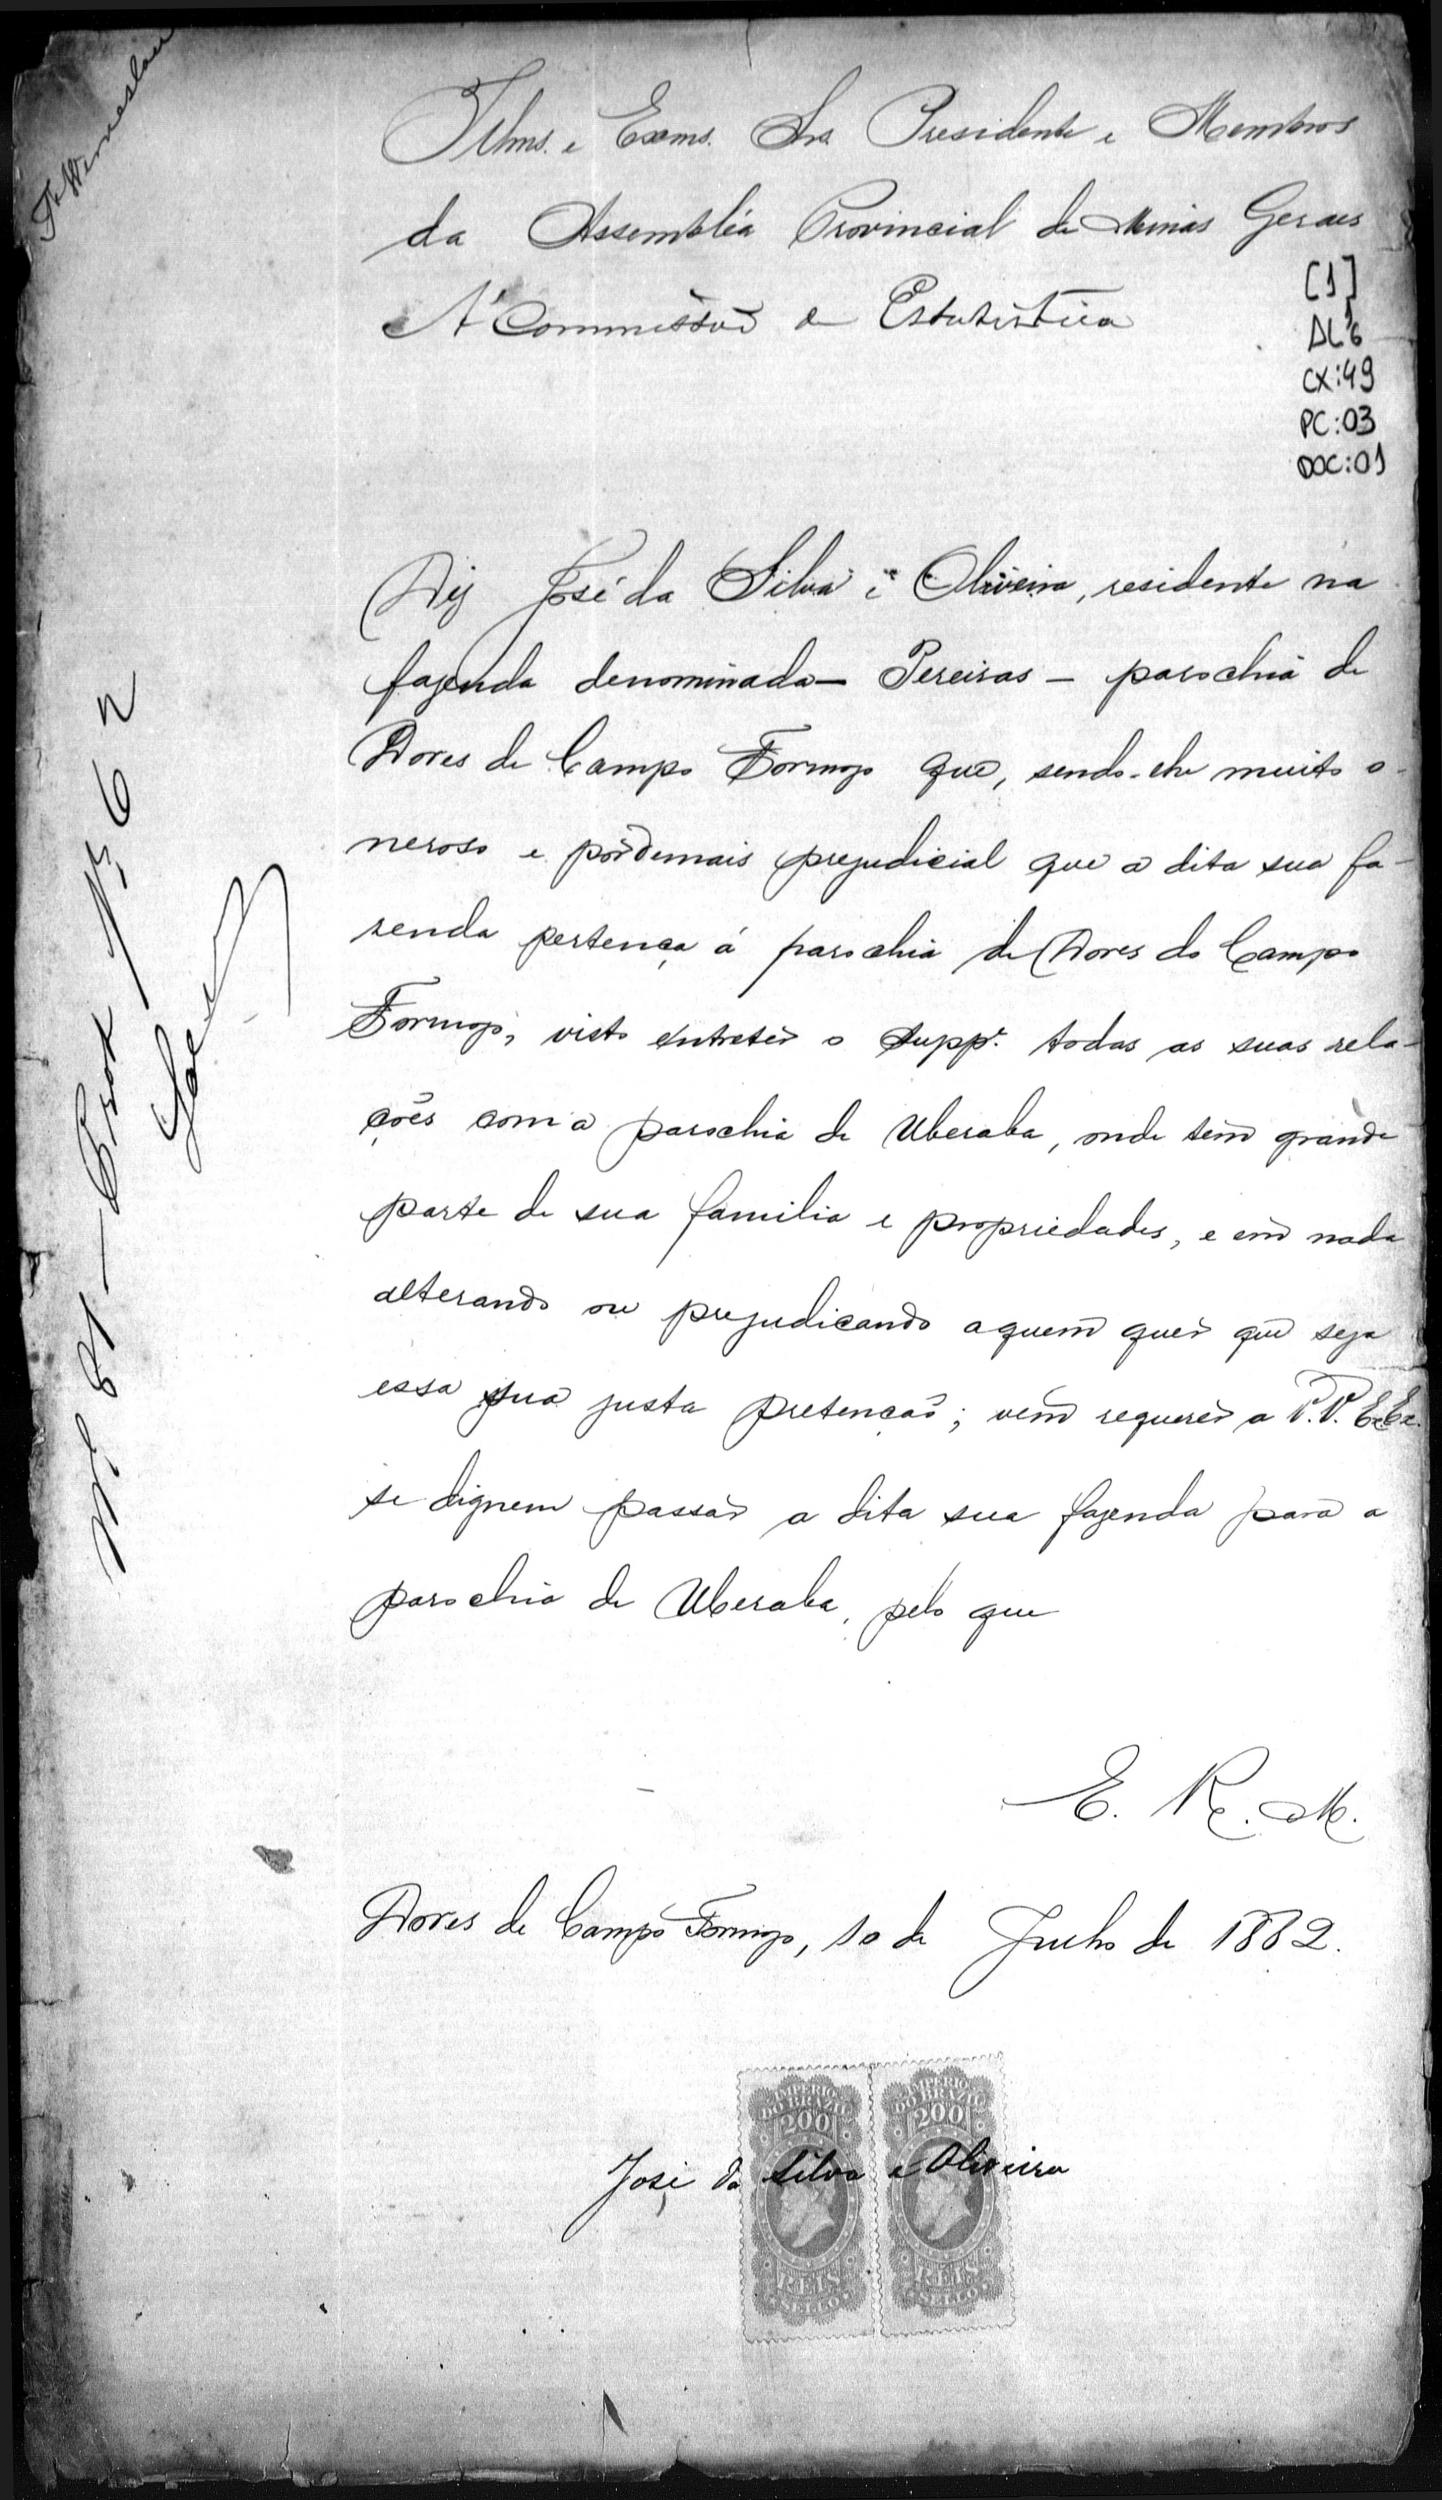 Illms. e Exms. Snrs. Presidente e Membros
da Assembléa Provincial de Minas Geraes
A' Commissão de Estatistica
[1]
AL 1/6
CX:49
PC:03
DOC:01
Diz José da Silva e Oliveira, residente na
fazenda denominada — Pereiras — parochia de
Dores de Campo Formozo que, sendo-lhe muito o-
neroso e pordemais prejudicial que a dita sua fa-
senda pertença á parochia de Dores do Campo
Formozo, visto entreter o suppe. todas as suas rela-
ções com a parochia de Uberaba, onde tem grande
parte de sua familia e propriedades, e em nada
alterando ou prejudicando aquem quer que seja
essa sua justa pretenção; vem requerer a V.V. Ex.Ex.
se dignem passar a dita sua fazenda para a
parochia de Uberaba, pelo que
E. R. M.
Dores de Campo Formozo, 10 de Julho de 1882.
IMPERIO DO BRAZIL 200 REIS SELLO
IMPERIO DO BRAZIL 200 REIS SELLO
José da Silva e Oliveira
Nº 81 — Nº 62